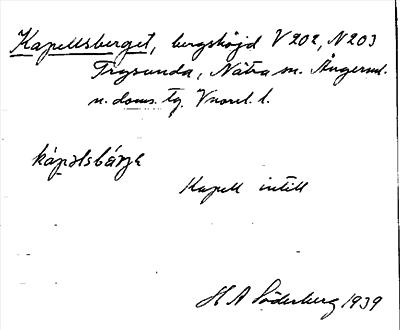 Kapellsberget, bergshöjd V202, N203
Trysunda, Nätra sn. Ångerml.
n. doms. tg. Vnorrl. l.
kápəlsbárjə
Kapell intill
H A Söderberg 1939